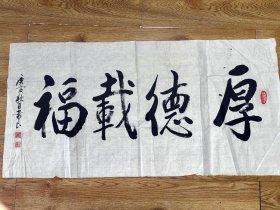 厚德載福
庚寅秋日